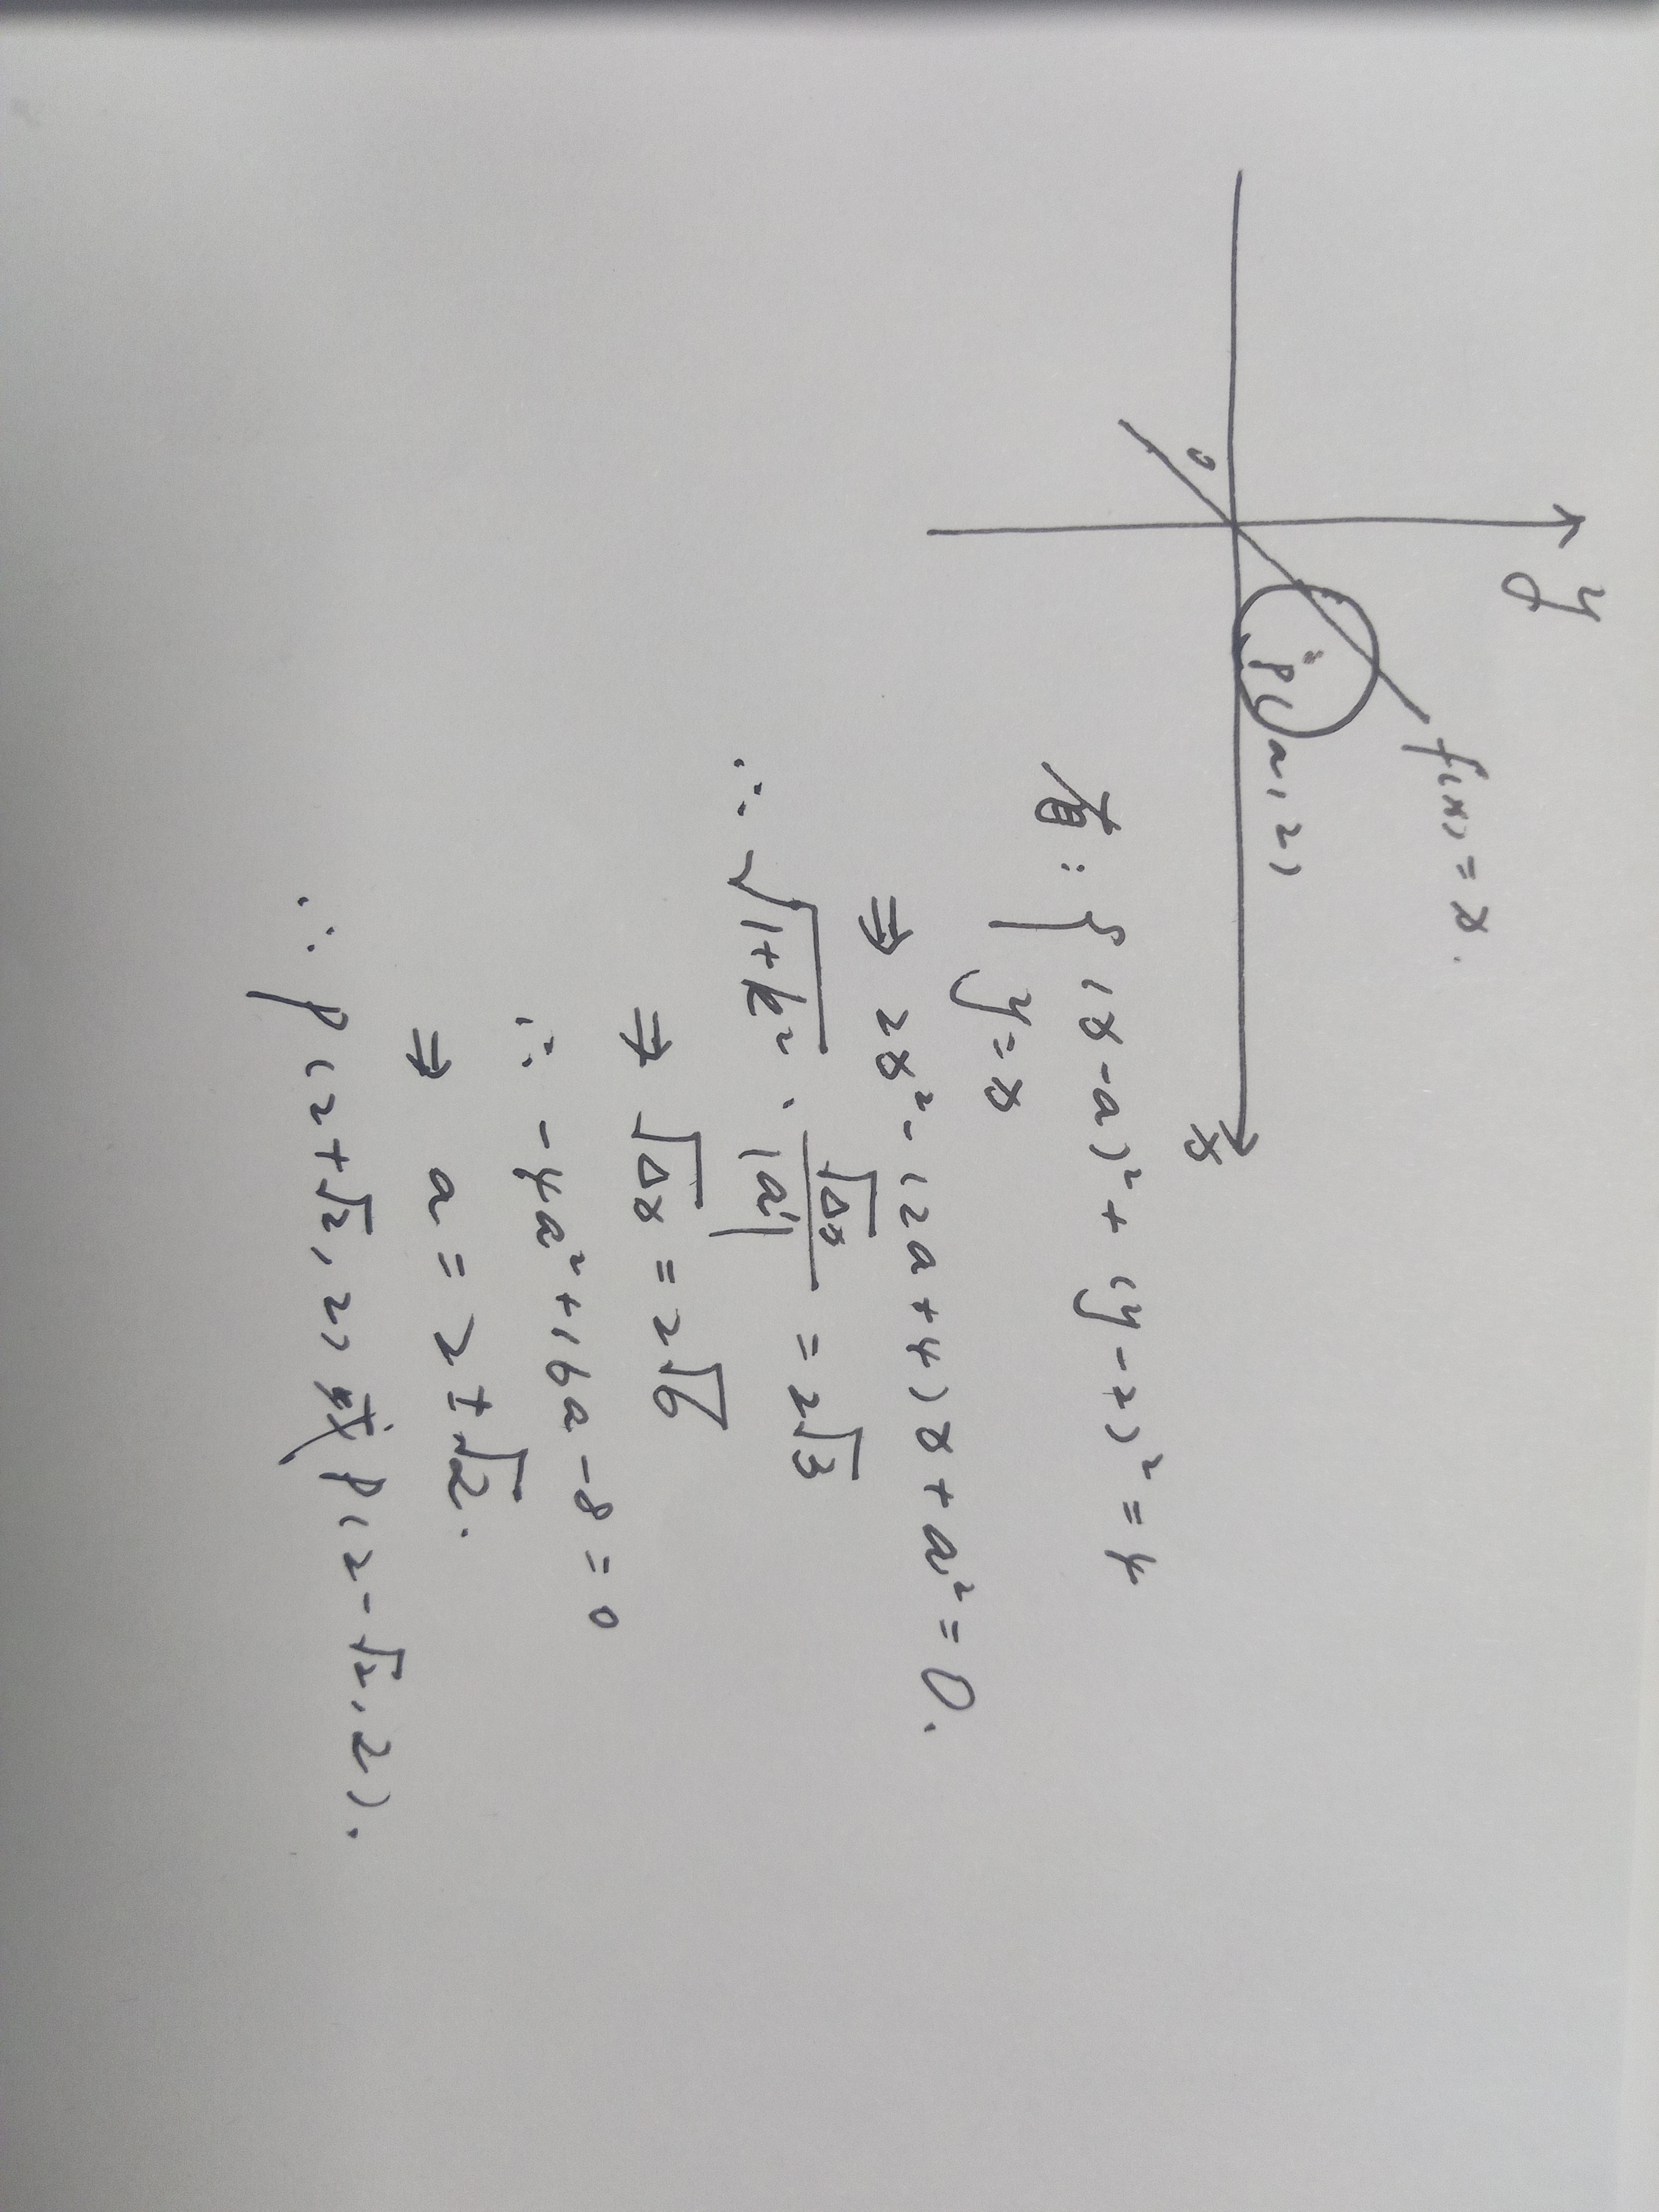 y
f(x)=x.
P(a,2)
0
x
有: { (x-a)²+(y-2)²=4
y=x
⇒ 2x²-(2a+4)x+a²=0.
∴ √(1+k²) · √Δx/|a'| = 2√3
⇒ √Δx = 2√6
∴ -4a²+16a-8=0
⇒ a=2±√2.
∴ P(2+√2,2)或P(2-√2,2).